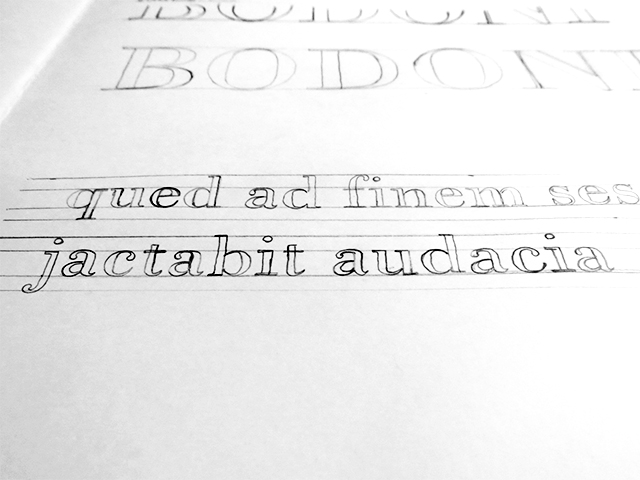 BODONI
BODONI
qued ad finem ses
jactabit audacia